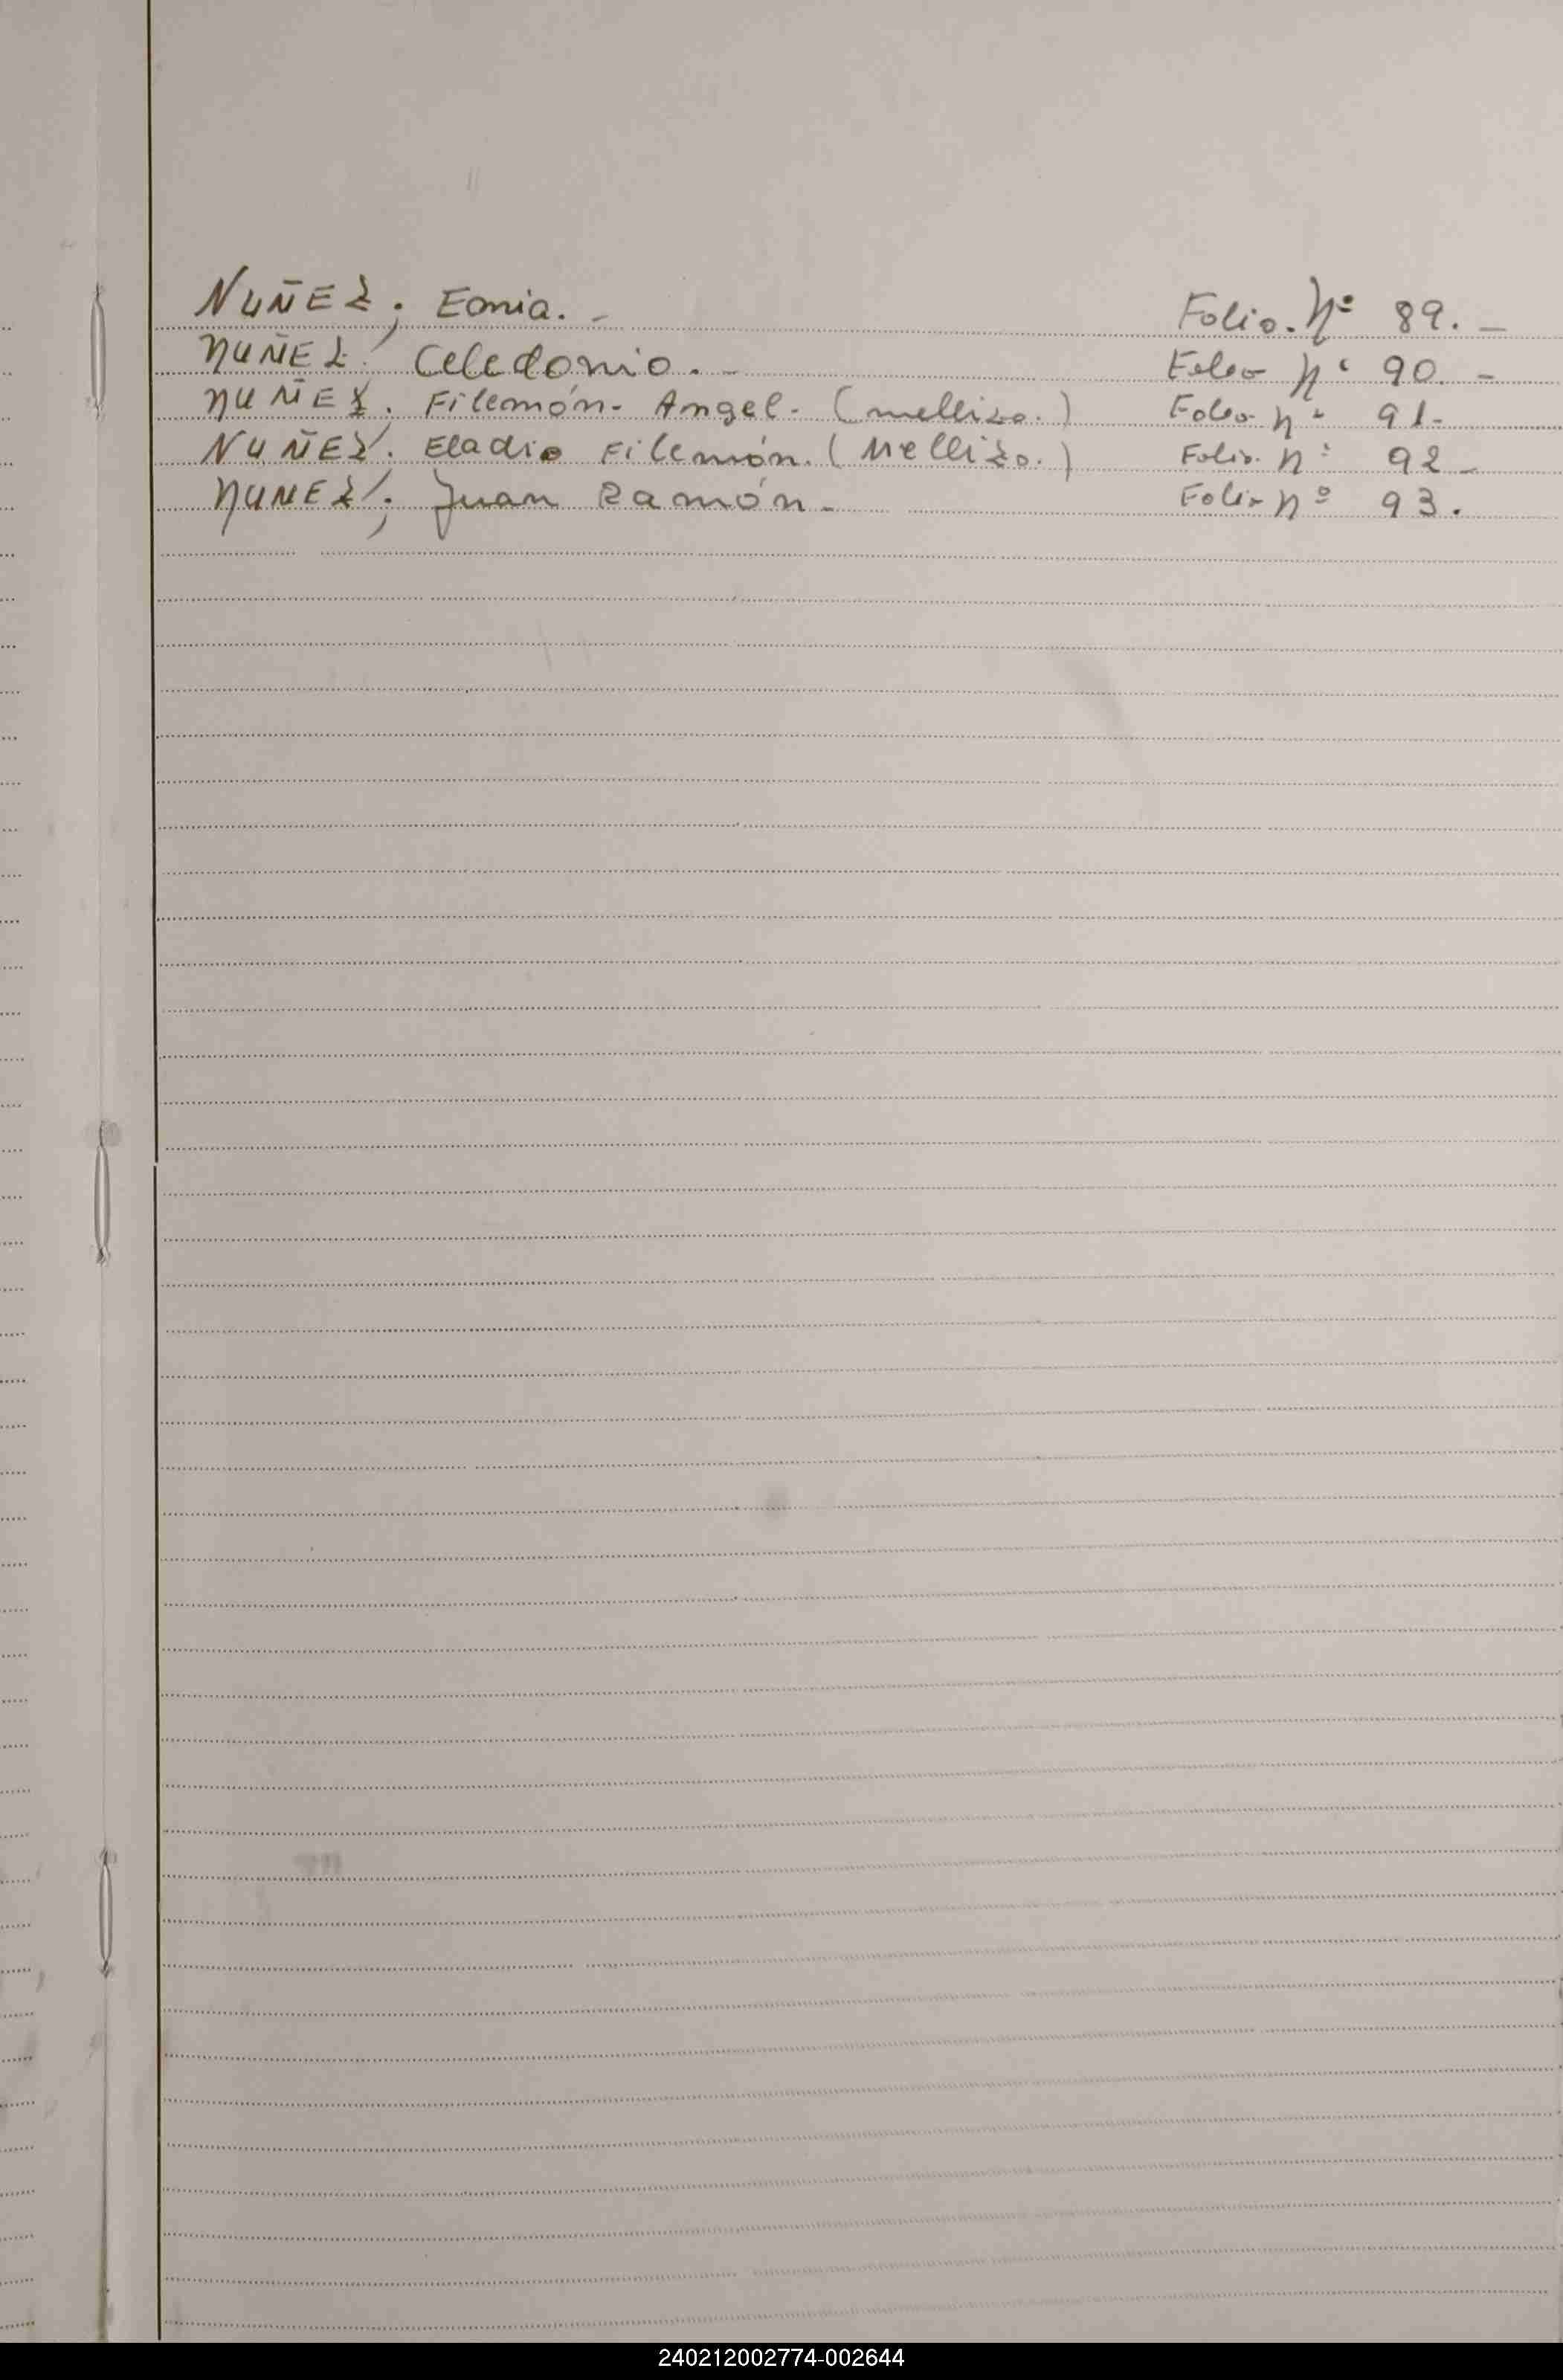 NUÑEZ; Eonia. - Folio. Nº 89. -
NUÑEZ. Celedonio. - Folio Nº 90. -
NUÑEZ. Filemón. Angel. (mellizo.) Folio nº 91-
NUÑEZ. Eladio Filemón. (Mellizo.) Folio. nº 92-
NUNEZ; Juan Ramón. Folio nº 93.
240212002774-002644